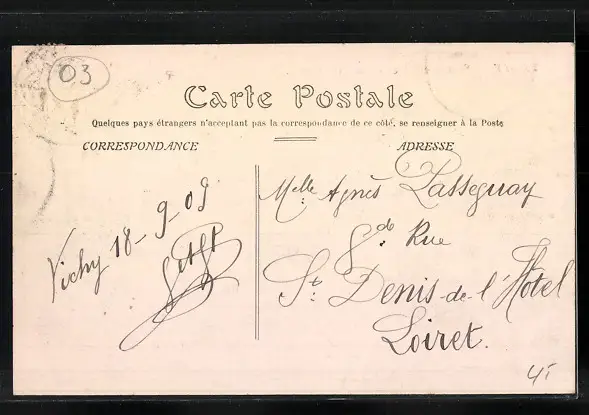 03
Carte Postale
Quelques pays étrangers n'acceptant pas la correspondance de ce côté, se renseigner à la Poste
CORRESPONDANCE
ADRESSE
Vichy 18-9-09
Melle Agnès Lasseguay
Gde Rue
St: Denis-de-l'Hôtel
Loiret.